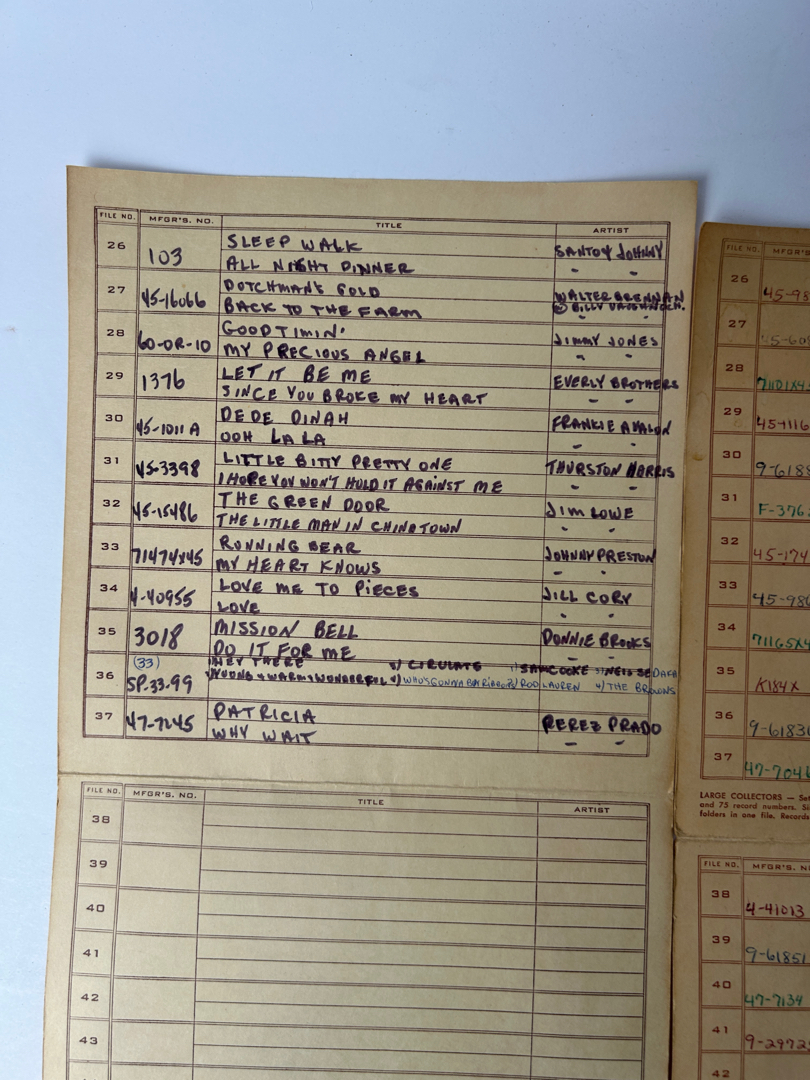 FILE NO. MFGR'S. NO. TITLE ARTIST
26 103 SLEEP WALK SANTOY JOHNNY
ALL NIGHT DINNER " "
27 45-16066 DOTCHMAN'S GOLD WALTER BRENNAN
BACK TO THE FARM BILLY VAUGHN
28 60-OR-10 GOOD TIMIN' JIMMY JONES
MY PRECIOUS ANGEL " "
29 1376 LET IT BE ME EVERLY BROTHERS
SINCE YOU BROKE MY HEART - -
30 45-1011 A DE DE DINAH FRANKIE AVALON
OOH LA LA - -
31 45-3398 LITTLE BITTY PRETTY ONE THURSTON HARRIS
I HOPE YOU WON'T HOLD IT AGAINST ME " "
32 45-15486 THE GREEN DOOR JIM LOWE
THE LITTLE MAN IN CHINATOWN " "
33 71474X45 RUNNING BEAR JOHNNY PRESTON
MY HEART KNOWS - -
34 4-40955 LOVE ME TO PIECES JILL CORY
LOVE " "
35 3018 MISSION BELL DONNIE BROOKS
DO IT FOR ME - -
36 (33) SP-33-99 HEY THERE CIRCULATE SAM COOKE NEIL SEDAKA
YOUNG + WARM + WONDERFUL WHO'S GONNA BUY ROD LAUREN 4) THE BROWNS
37 47-7245 PATRICIA PEREZ PRADO
WHY WAIT - -
FILE NO. MFGR'S. NO. TITLE ARTIST
38
39
40
41
42
43
FILE NO. MFGR'S
26 45-98
27 45-60
28 71101X4
29 45-1116
30 9-6188
31 F-376
32 45-174
33 45-980
34 71165X4
35 K184X
36 9-61830
37 47-704
LARGE COLLECTORS — Set
and 75 record numbers. Si
folders in one file. Records
FILE NO. MFGR'S. N
38 4-41013
39 9-61851
40 47-7134
41 9-2972
42